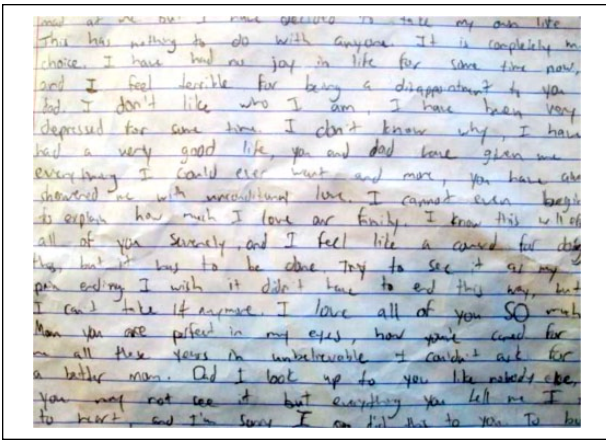 mad at me but I have decided to take my own life
This has nothing to do with anyone. It is completely m
choice. I have had no joy in life for some time now,
and I feel terrible for being a disappointment to you
dad. I don't like who I am, I have been very
depressed for some time. I don't know why, I have
had a very good life, you and dad have given me
everything I could ever want and more, you have
showered me with unconditional love. I cannot even begin
to explain how much I love our family. I know this will
all of you severely, and I feel like a coward for
this, but it has to be done Try to see it as my
pain ending I wish it didn't have to end this way, but
I can't take it anymore. I love all of you SO much
Mom you are perfect in my eyes, how you've cared for
me all these years is unbelievable I couldn't ask for
a better mom. Dad I look up to you like nobody else,
you may not see it but everything you tell me I
to heart, and I'm sorry I did this to you. To